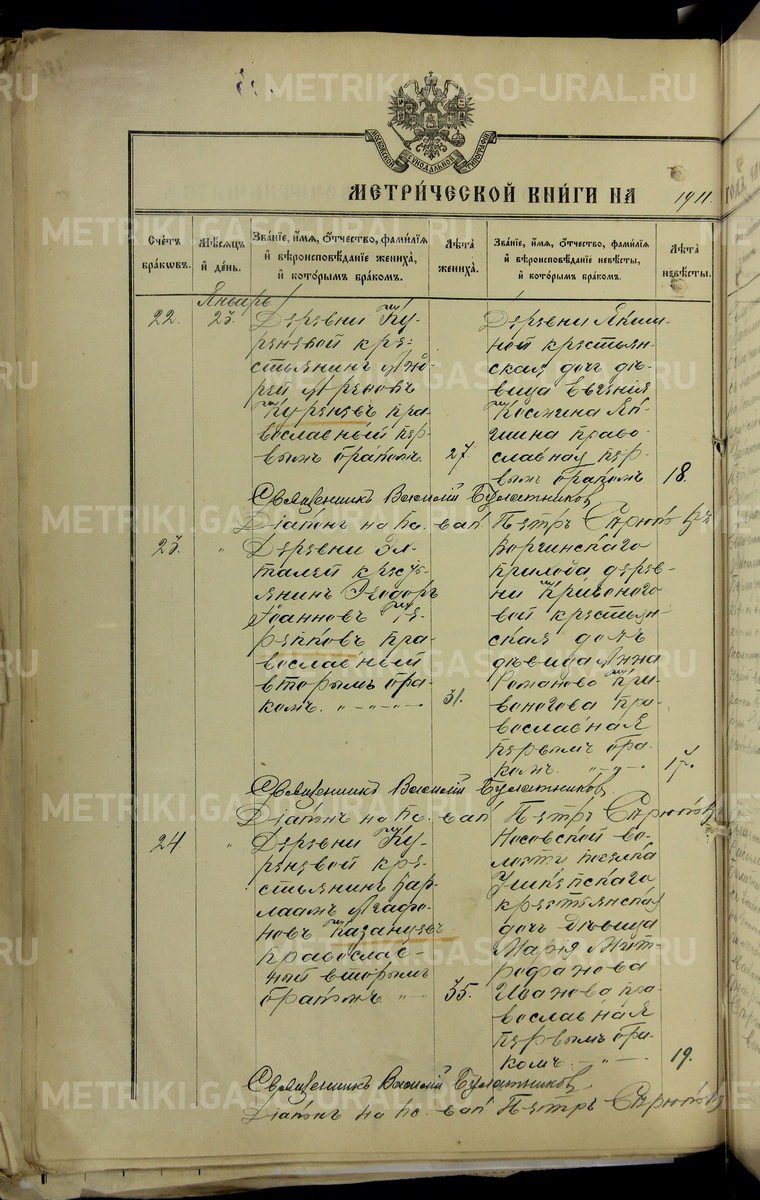 МЕТРИ́ЧЕСКОЙ КНИ́ГИ НА 1911.
Сче́тъ бра́ковъ.
Мѣ́сяцъ и́ де́нь.
Зва́нїе, и́мя, ѻ́тчество, фами́лїя и́ вѣроисповѣ́данїе жениха̀, и́ кото́рымъ бра́комъ.
Лѣ́та жениха̀.
Зва́нїе, и́мя, ѻ́тчество, фами́лїя и́ вѣроисповѣ́данїе невѣ́сты, и́ кото́рымъ бра́комъ.
Лѣ́та невѣ́сты.
Январь
22.
23.
Деревни Ку-
реневой кре-
стьянинъ
Куреневъ пра-
вославный пер-
вымъ бракомъ.
27
Деревни Якши-
ной крестьян-
ская дочь дѣ-
вица Евгенія
Космина Як-
шина право-
славная пер-
вымъ бракомъ
18.
Священникъ Василій Булатников
Діаконъ на пс. вак Петръ
23.
"
Деревни
кресть-
янинъ Ѳеодоръ
Іоанновъ
пра-
вославный
вторымъ бра-
комъ. " - " - " -
31.
прихода дерев-
ни Кривоного-
вой крестьян-
ская дочь
дѣвица Анна
Романова Кри-
воногова пра-
вославная
первымъ бра-
комъ. " - " -
17.
Священникъ Василій Булатников
Діаконъ на пс. вак Петръ
24
"
Деревни Ку-
реневой кре-
стьянинъ Вар-
лаамъ Агафо-
новъ Казанцевъ
православ-
ный вторымъ
бракомъ " -
35.
Носовской во-
лости поселка
крестьянская
дочь дѣвица
Марія Мит-
рофанова
Иванова пра-
вославная
первымъ бра-
комъ. - " -
19.
Священникъ Василій Булатников
Діаконъ на пс. вак Петръ
METRIKI.GASO-URAL.RU